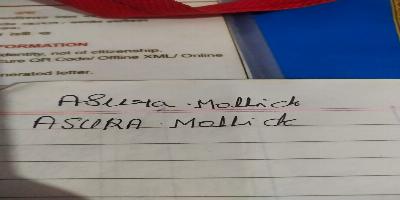 ORMATION
dentity, not of citizenship.
ure QR Code/ Offline XML/ Online
nerated letter.
Asura. Mollick
ASURA. Mollick